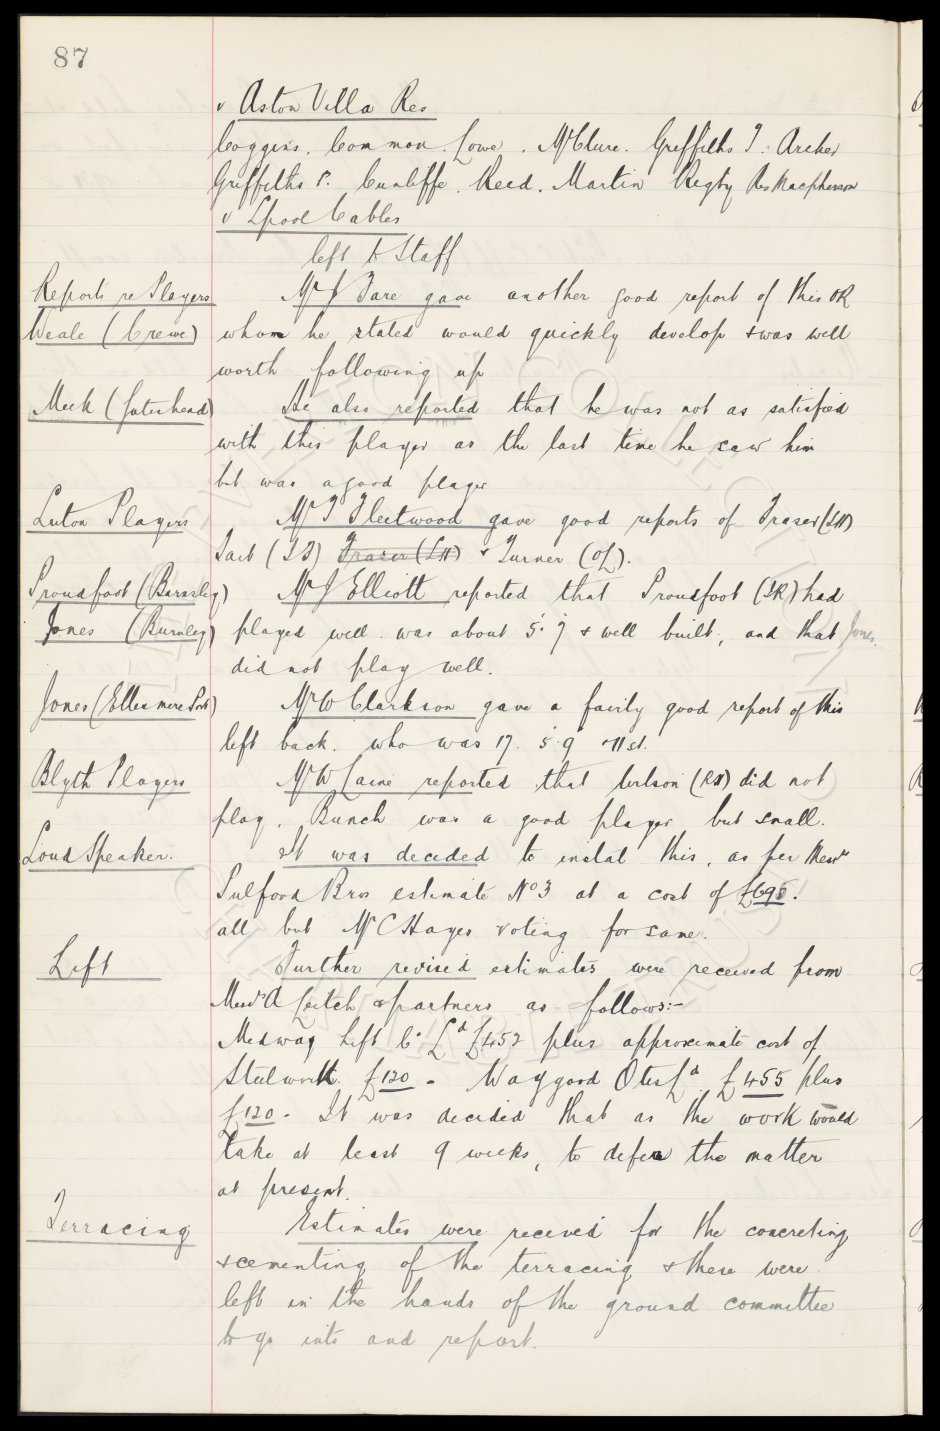 87
v Aston Villa Res
Coggins. Common. Lowe. McClure. Griffiths T. Archer
Griffiths P. Cunliffe. Reed. Martin Rigby Res Macpherson
v Lpool Cables
left to Staff
Reports re Players
Weale (Crewe)
Mr J Fare gave another good report of this OR
whom he stated would quickly develop & was well
worth following up
Meek (Gateshead)
He also reported that he was not as satisfied
with this player as the last time he saw him
but was a good player
Luton Players
Mr T Fleetwood gave good reports of Fraser (LH)
Tait (IL) Fraser (LH) & Turner (OL).
Proudfoot (Barnsley)
Jones (Burnley)
Mr J Elliott reported that Proudfoot (IR) had
played well. was about 5.9 & well built, and that Jones
did not play well.
Jones (Ellesmere Port)
Mr W Clarkson gave a fairly good report of this
left back. who was 17. 5.9 11 st.
Blyth Players
Mr W reported that (RB) did not
play. Bunch was a good player but small.
Loud Speaker.
It was decided to instal this, as per Messrs
Pulford Bros estimate No 3 at a cost of
all but Mr C Hayes voting for same.
Lift
Further revised estimates were received from
Messrs A Leitch & partners as follows:-
Medway Lift Co Ld £452 plus approximate cost of
Steelwork £120 - Waygood Otis Ld £455 plus
£120 - It was decided that as the work would
take at least 9 weeks, to defer the matter
at present.
Terracing
Estimates were received for the concreting
& cementing of the terracing & these were
left in the hands of the ground committee
to go into and report.